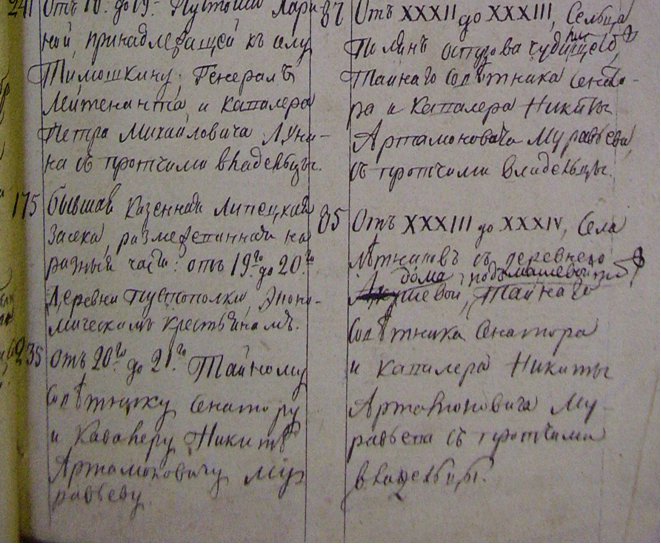 241 Отъ 18. до 19. Пустоши Лари
ной, принадлежащей къ селу
Тимошкину; Генералъ
Лейтенанта, и кавалера
Петра Михайловича Луни-
на съ протчими владельцы.
175 бывшая казенная Липецкая
Засека, размежеванная на
разныя части: отъ 19.го до 20.го
Деревни Пустополки, Эконо-
мическимъ крестьянамъ.
235 Отъ 20.го до 21.го Тайному
Совѣтнику Сенатору
и Кавалеру Никитѣ
Артамоновичу Му
равьеву.
87 Отъ XXXII до XXXIII, Сельца
Полянъ
Тайнаго Совѣтника Сенато-
ра и Кавалера Никиты
Артамоновича Муравьева
съ протчими владельцы.
85 Отъ XXXIII до XXXIV, Села
съ деревнею
Тайнаго
Совѣтника Сенатора
и Кавалера Никиты
Артамоновича Му-
равьева съ протчими
владельцы.